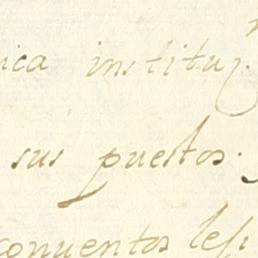 ica instituz.
sus puestos.
conuentos lesi